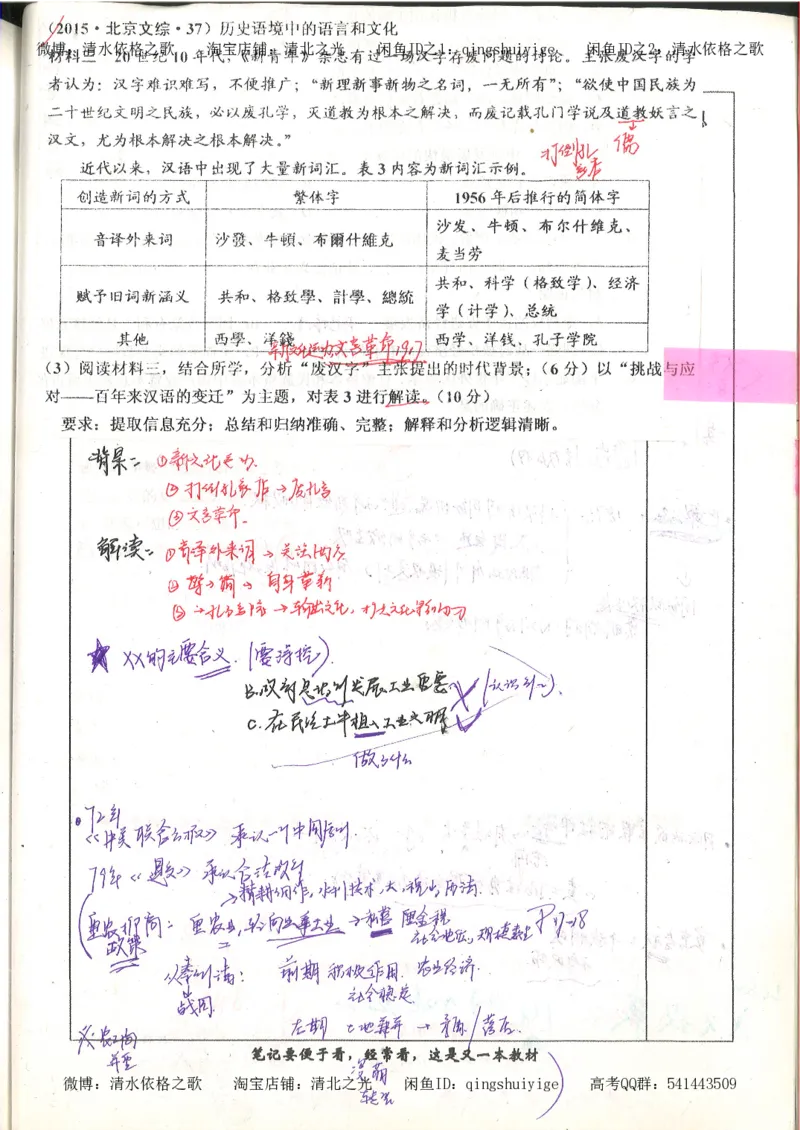 （2015·北京文综·37）历史语境中的语言和文化
微博：清水依格之歌 淘宝店铺：清北之光 闲鱼ID之1：qingshuiyige 闲鱼ID之2：清水依格之歌
材料三 20世纪10年代，《新青年》杂志有过一场汉字存废问题的讨论。主张废汉字的学
者认为：汉字难识难写，不便推广；“新理新事新物之名词，一无所有”；“欲使中国民族为
二十世纪文明之民族，必以废孔学，灭道教为根本之解决，而废记载孔门学说及道教妖言之
汉文，尤为根本解决之根本解决。”
儒
打倒孔家店
近代以来，汉语中出现了大量新词汇。表3内容为新词汇示例。
创造新词的方式 繁体字 1956年后推行的简体字
音译外来词 沙發、牛頓、布爾什維克 沙发、牛顿、布尔什维克、
麦当劳
赋予旧词新涵义 共和、格致學、計學、總統 共和、科学（格致学）、经济
学（计学）、总统
其他 西學、洋錢 西学、洋钱、孔子学院
新文化运动文言革命1917
（3）阅读材料三，结合所学，分析“废汉字”主张提出的时代背景；（6分）以“挑战与应
对——百年来汉语的变迁”为主题，对表3进行解读。（10分）
要求：提取信息充分；总结和归纳准确、完整；解释和分析逻辑清晰。
背景：①新文化运动.
②打倒孔家店→反孔言
③文言革命.
解读：①音译外来词→关注西方
②繁→简→自身革新
③→孔子学院→输出文化，扩大文化影响力
★ XX的主要含义.（要深挖）.
B.政府意识到发展工业重要 ×（认识到）.
C.在民论土中植入工业文明 ✓
做什么
72年
《中美联合公报》承认一个中国原则.
79年《 》承认合法政府
→精耕细作，水利技术，天，提出历法.
重农抑商：重农业，轻商业手工业→ 重金税
政策
社会地位，规模禁止 P17-18
从秦到清： 前期 积极作用 农业经济.
战国 社会稳定
后期 土地兼并→矛盾/落后.
农工商
并重
笔记要便于看，经常看，这是又一本教材
萌
微博：清水依格之歌 淘宝店铺：清北之光 闲鱼ID：qingshuiyige 高考QQ群：541443509